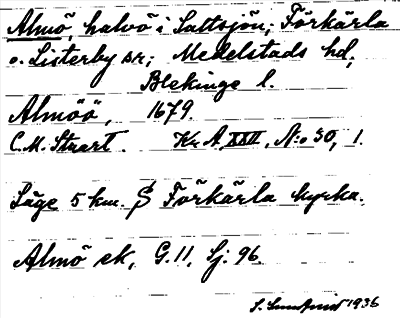 Almö, halvö i Saltsjön; Förkärla
o. Listerby sr; Medelstads hd;
Blekinge l.
Almöö, 1679.
C.M. Strart. Kr. A, XXII, N:o 30, 1.
Läge 5 km. S Förkärla kyrka.
Almö ek, G.11, Sj. 96.
1936